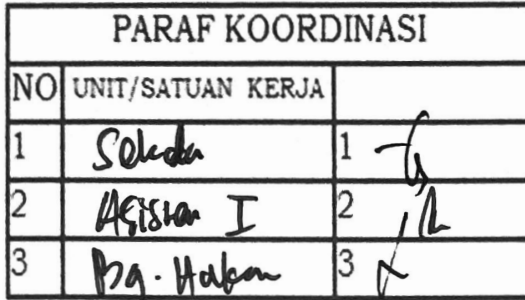 PARAF KOORDINASI
NO UNIT/SATUAN KERJA
1 Sekda 1
2 Asisten I 2
3 Bg. Hukum 3